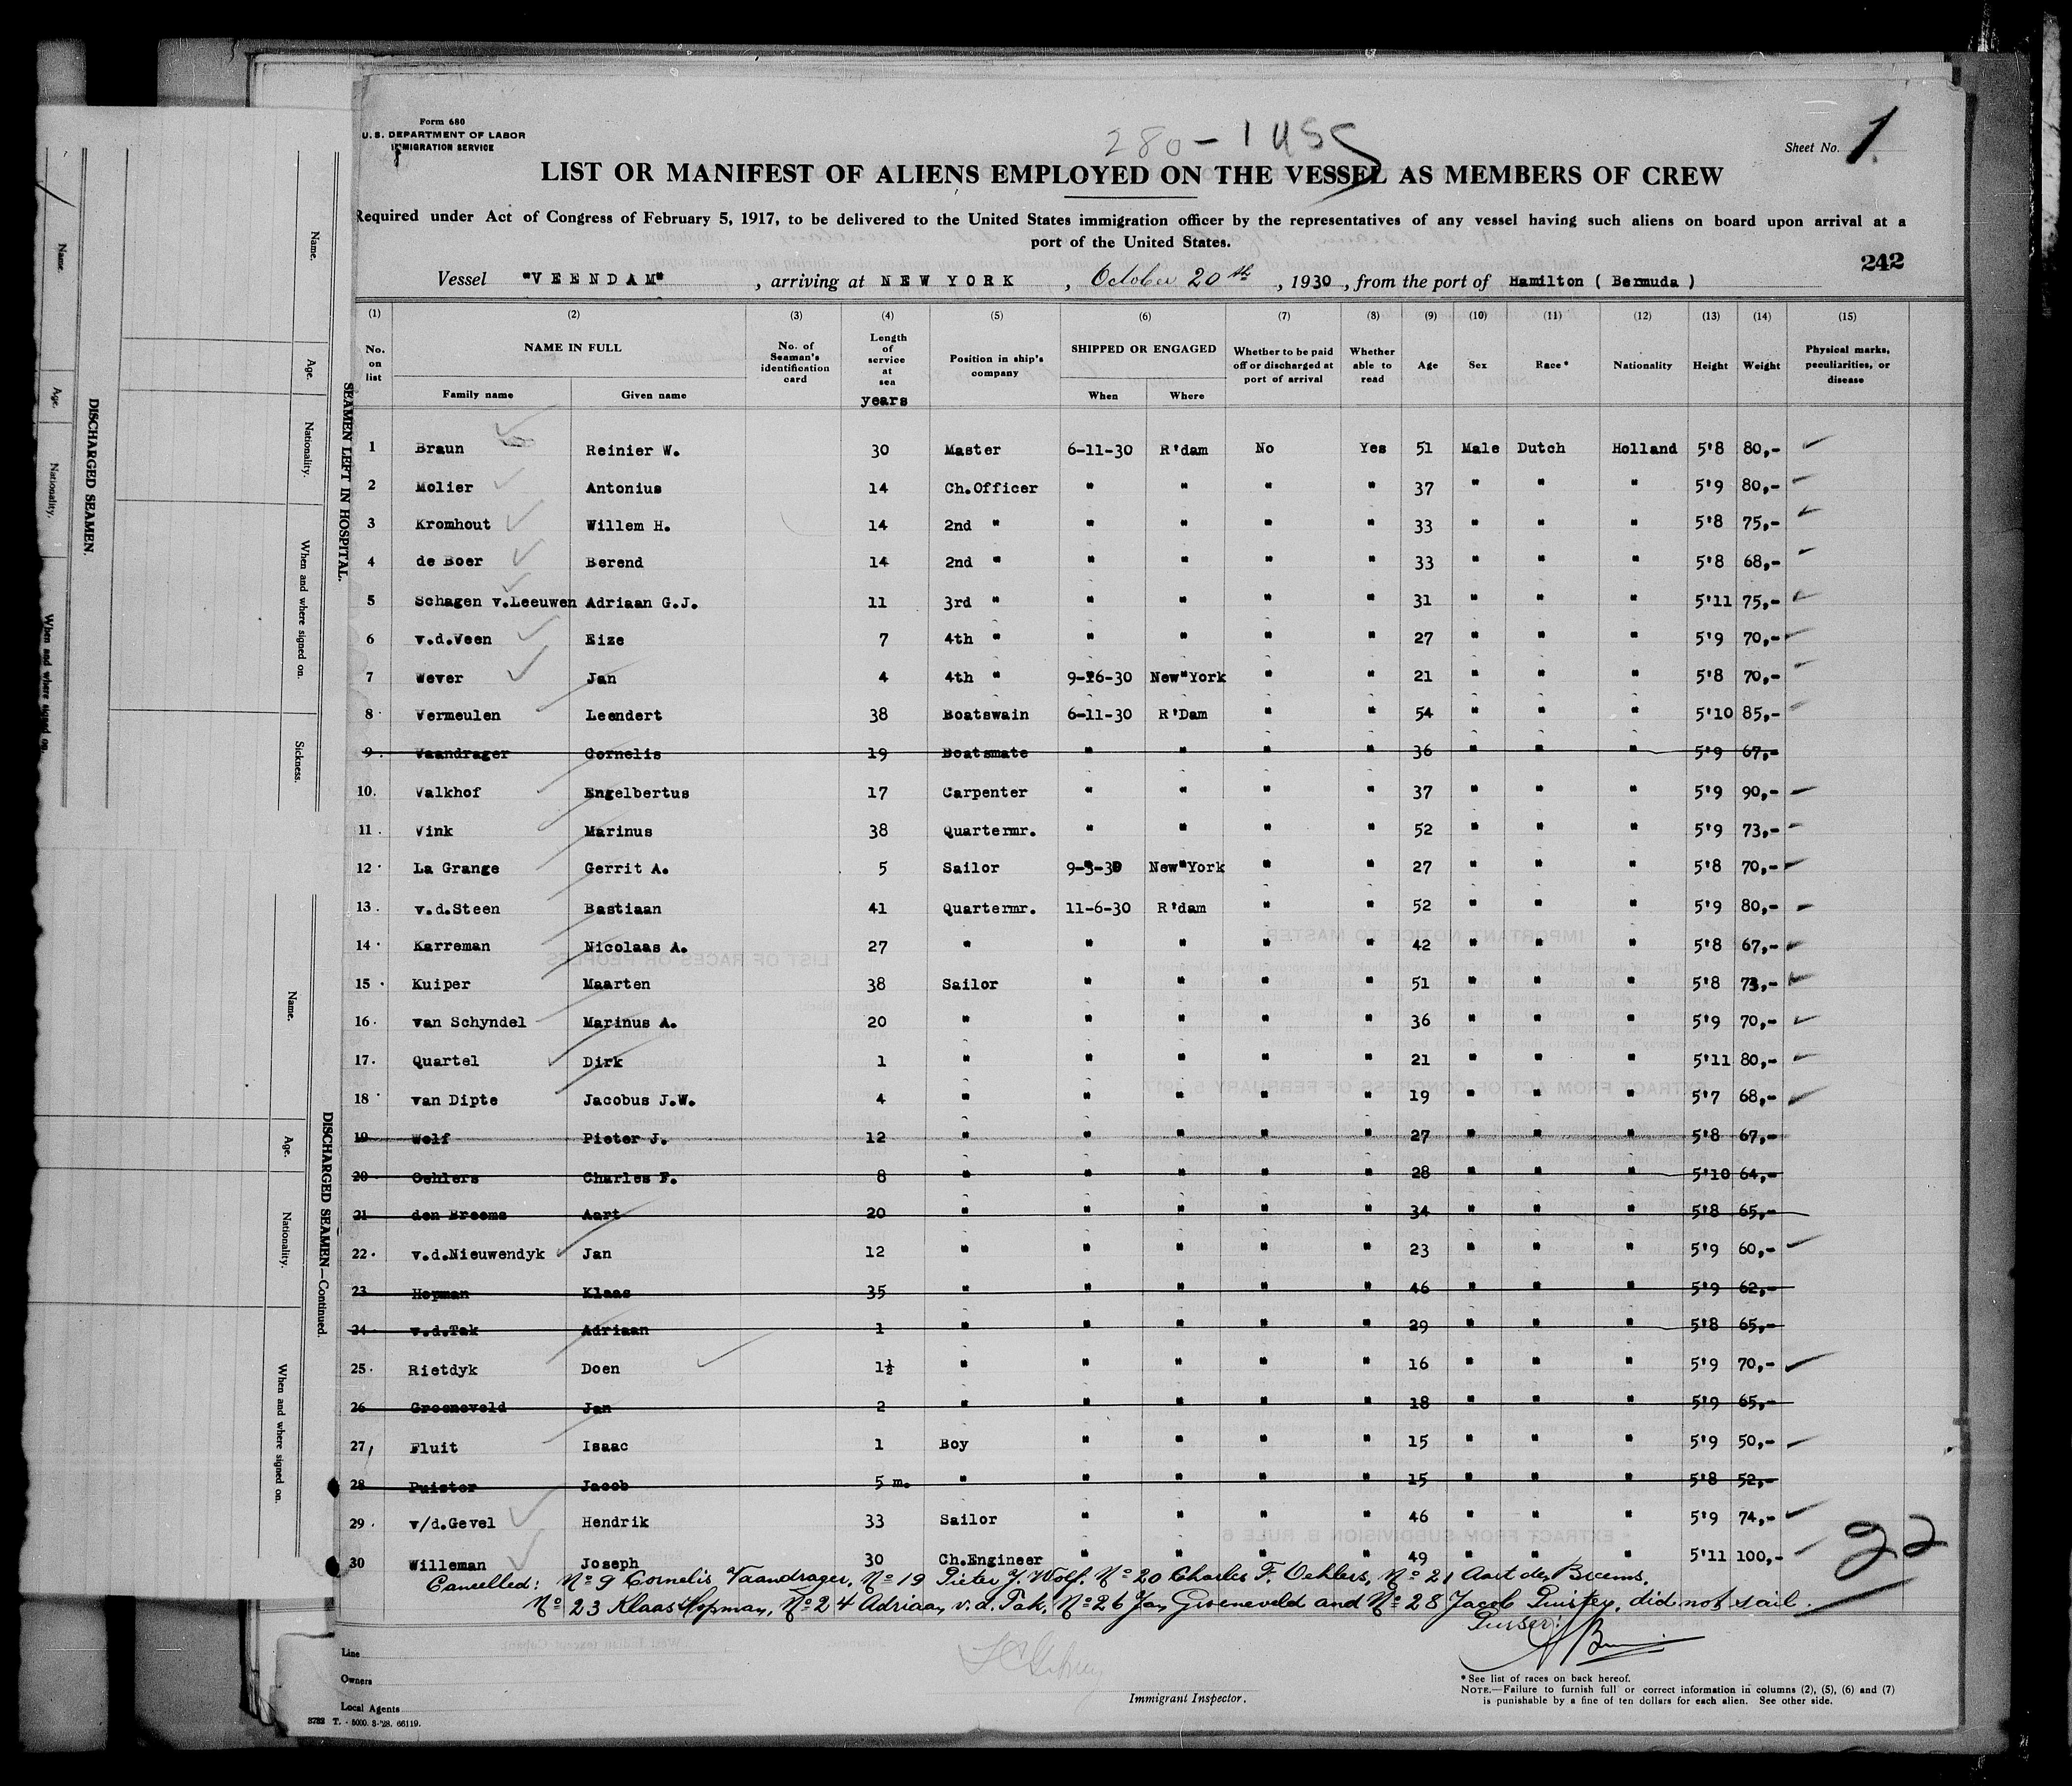 Form 680
U. S. DEPARTMENT OF LABOR
IMMIGRATION SERVICE
280-1455
Sheet No. 1
LIST OR MANIFEST OF ALIENS EMPLOYED ON THE VESSEL AS MEMBERS OF CREW
Required under Act of Congress of February 5, 1917, to be delivered to the United States immigration officer by the representatives of any vessel having such aliens on board upon arrival at a
port of the United States.
242
Vessel "VEENDAM", arriving at NEW YORK, October 20th, 1930, from the port of Hamilton ( Bermuda )
(1) (2) (3) (4) (5) (6) (7) (8) (9) (10) (11) (12) (13) (14) (15)
No. on list NAME IN FULL Family name Given name No. of Seaman's identification card Length of service at sea years Position in ship's company SHIPPED OR ENGAGED When Where Whether to be paid off or discharged at port of arrival Whether able to read Age Sex Race* Nationality Height Weight Physical marks, peculiarities, or disease
1 Braun Reinier W. 30 Master 6-11-30 R'dam No Yes 51 Male Dutch Holland 5'8 80,-
2 Molier Antonius 14 Ch.Officer " " " " 37 " " " 5'9 80,-
3 Kromhout Willem H. 14 2nd " " " " " 33 " " " 5'8 75,-
4 de Boer Berend 14 2nd " " " " " 33 " " " 5'8 68,-
5 Schagen v.Leeuwen Adriaan G.J. 11 3rd " " " " " 31 " " " 5'11 75,-
6 v.d.Veen Eize 7 4th " " " " " 27 " " " 5'9 70,-
7 Wever Jan 4 4th " 9-26-30 New York " " 21 " " " 5'8 70,-
8 Vermeulen Leendert 38 Boatswain 6-11-30 R'Dam " " 54 " " " 5'10 85,-
9 Vaandrager Cornelis 19 Boatsmate " " " " 36 " " " 5'9 67,-
10. Valkhof Engelbertus 17 Carpenter " " " " 37 " " " 5'9 90,-
11. Vink Marinus 38 Quartermr. " " " " 52 " " " 5'9 73,-
12 La Grange Gerrit A. 5 Sailor 9-3-30 New York " " 27 " " " 5'8 70,-
13. v.d.Steen Bastiaan 41 Quartermr. 11-6-30 R'dam " " 52 " " " 5'9 80,-
14 Karreman Nicolaas A. 27 " " " " " 42 " " " 5'8 67,-
15 Kuiper Maarten 38 Sailor " " " " 51 " " " 5'8 73,-
16. van Schyndel Marinus A. 20 " " " " " 36 " " " 5'9 70,-
17. Quartel Dirk 1 " " " " " 21 " " " 5'11 80,-
18 van Dipte Jacobus J.W. 4 " " " " " 19 " " " 5'7 68,-
19 Wolf Pieter J. 12 " " " " " 27 " " " 5'8 67,-
20 Oehlers Charles F. 8 " " " " " 28 " " " 5'10 64,-
21 den Breems Aart 20 " " " " " 34 " " " 5'8 65,-
22. v.d.Nieuwendyk Jan 12 " " " " " 23 " " " 5'9 60,-
23 Hopman Klaas 35 " " " " " 46 " " " 5'9 62,-
24 v.d.Tak Adriaan 1 " " " " " 29 " " " 5'8 65,-
25. Rietdyk Doen 1½ " " " " " 16 " " " 5'9 70,-
26 Groeneveld Jan 2 " " " " " 18 " " " 5'9 65,-
27, Fluit Isaac 1 Boy " " " " 15 " " " 5'9 50,-
28 Puister Jacob 5 m. " " " " " 15 " " " 5'8 52,-
29. v/d.Gevel Hendrik 33 Sailor " " " " 46 " " " 5'9 74,-
30 Willeman Joseph 30 Ch.Engineer " " " " 49 " " " 5'11 100,-
22
Cancelled: No 9 Cornelis Vaandrager, No 19 Pieter J. Wolf, No 20 Charles F. Oehlers, No 21 Aart den Breems,
No 23 Klaas Hopman, No 24 Adriaan v.d. Tak, No 26 Jan Groeneveld and No 28 Jacob Puister, did not sail.
Purser:
Line
Owners
Local Agents
Immigrant Inspector.
* See list of races on back hereof.
NOTE.—Failure to furnish full or correct information in columns (2), (5), (6) and (7)
is punishable by a fine of ten dollars for each alien. See other side.
3783 T. - 5000. 3-'28. 66119.
SEAMEN LEFT IN HOSPITAL.
Name. Age. Nationality. When and where signed on. Sickness.
DISCHARGED SEAMEN.
Name. Age. Nationality. When and where signed on.
DISCHARGED SEAMEN—Continued.
Name. Age. Nationality. When and where signed on.